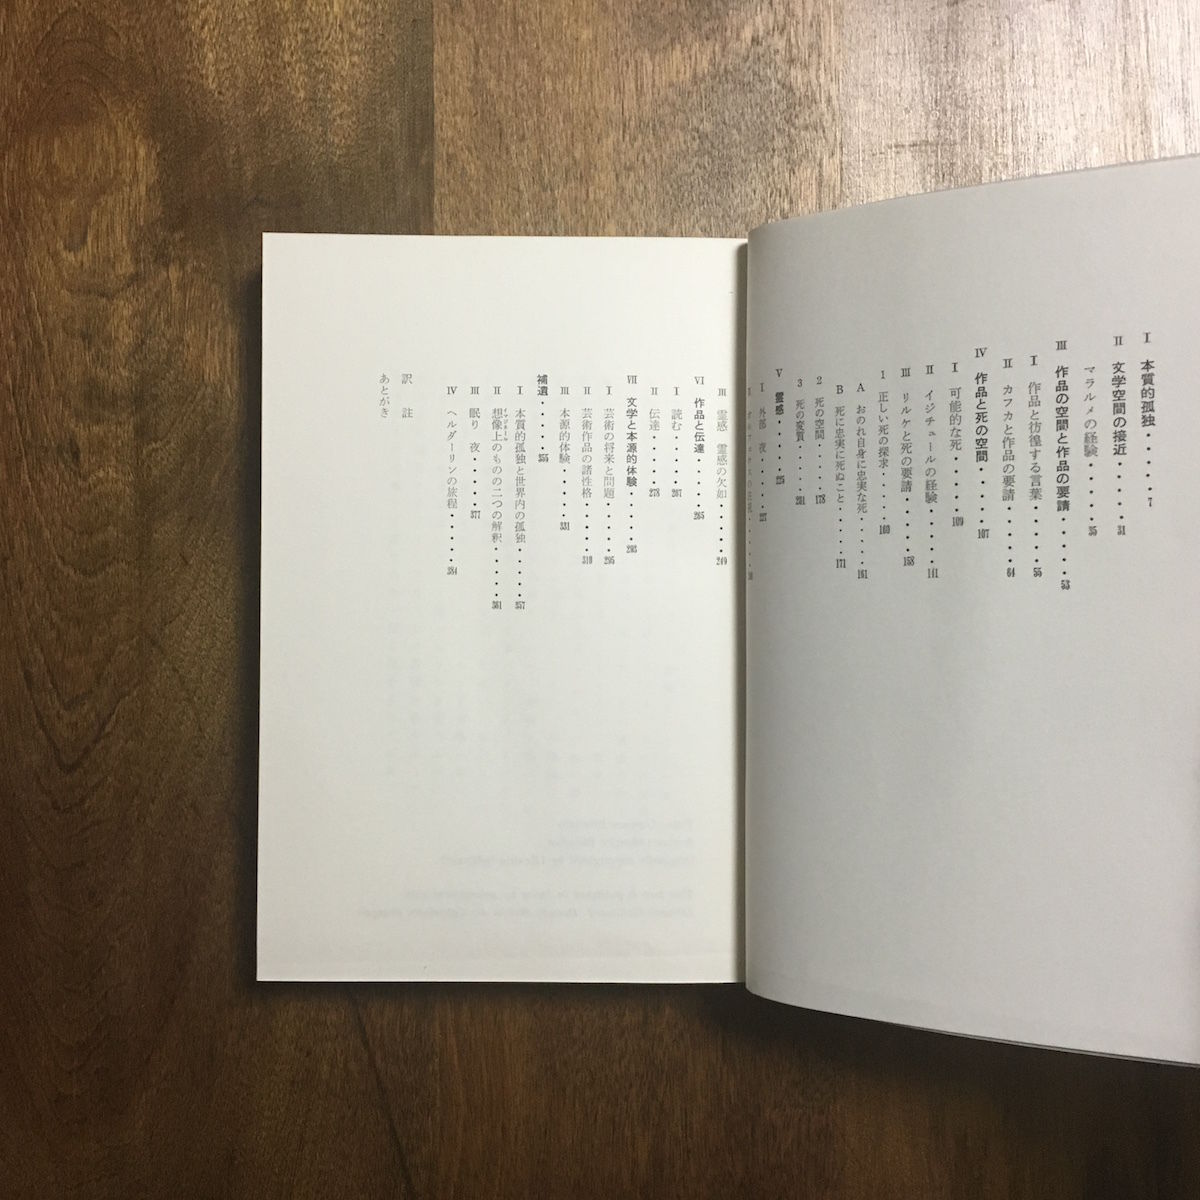 Ⅰ 本質的孤独・・・・・7
Ⅱ 文学空間の接近・・・・・31
マラルメの経験・・・・・35
Ⅲ 作品の空間と作品の要請・・・・・53
Ⅰ 作品と彷徨する言葉・・・・・55
Ⅱ カフカと作品の要請・・・・・64
Ⅳ 作品と死の空間・・・・・107
Ⅰ 可能的な死・・・・・109
Ⅱ イジチュールの経験・・・・・141
Ⅲ リルケと死の要請・・・・・158
1 正しい死の探求・・・・・160
A おのれ自身に忠実な死・・・・・161
B 死に忠実に死ぬこと・・・・・171
2 死の空間・・・・・178
3 死の変質・・・・・201
Ⅴ 霊感・・・・・225
Ⅰ 外部 夜・・・・・227
Ⅲ 霊感 霊感の欠如・・・・・249
Ⅵ 作品と伝達・・・・・265
Ⅰ 読む・・・・・267
Ⅱ 伝達・・・・・278
Ⅶ 文学と本源的体験・・・・・293
Ⅰ 芸術の将来と問題・・・・・295
Ⅱ 芸術作品の諸性格・・・・・310
Ⅲ 本源的体験・・・・・331
補遺・・・・・355
Ⅰ 本質的孤独と世界内の孤独・・・・・357
Ⅱ 想像上のもの二つの解釈・・・・・361
Ⅲ 眠り 夜・・・・・377
Ⅳ ヘルダーリンの旅程・・・・・384
訳 註
あとがき